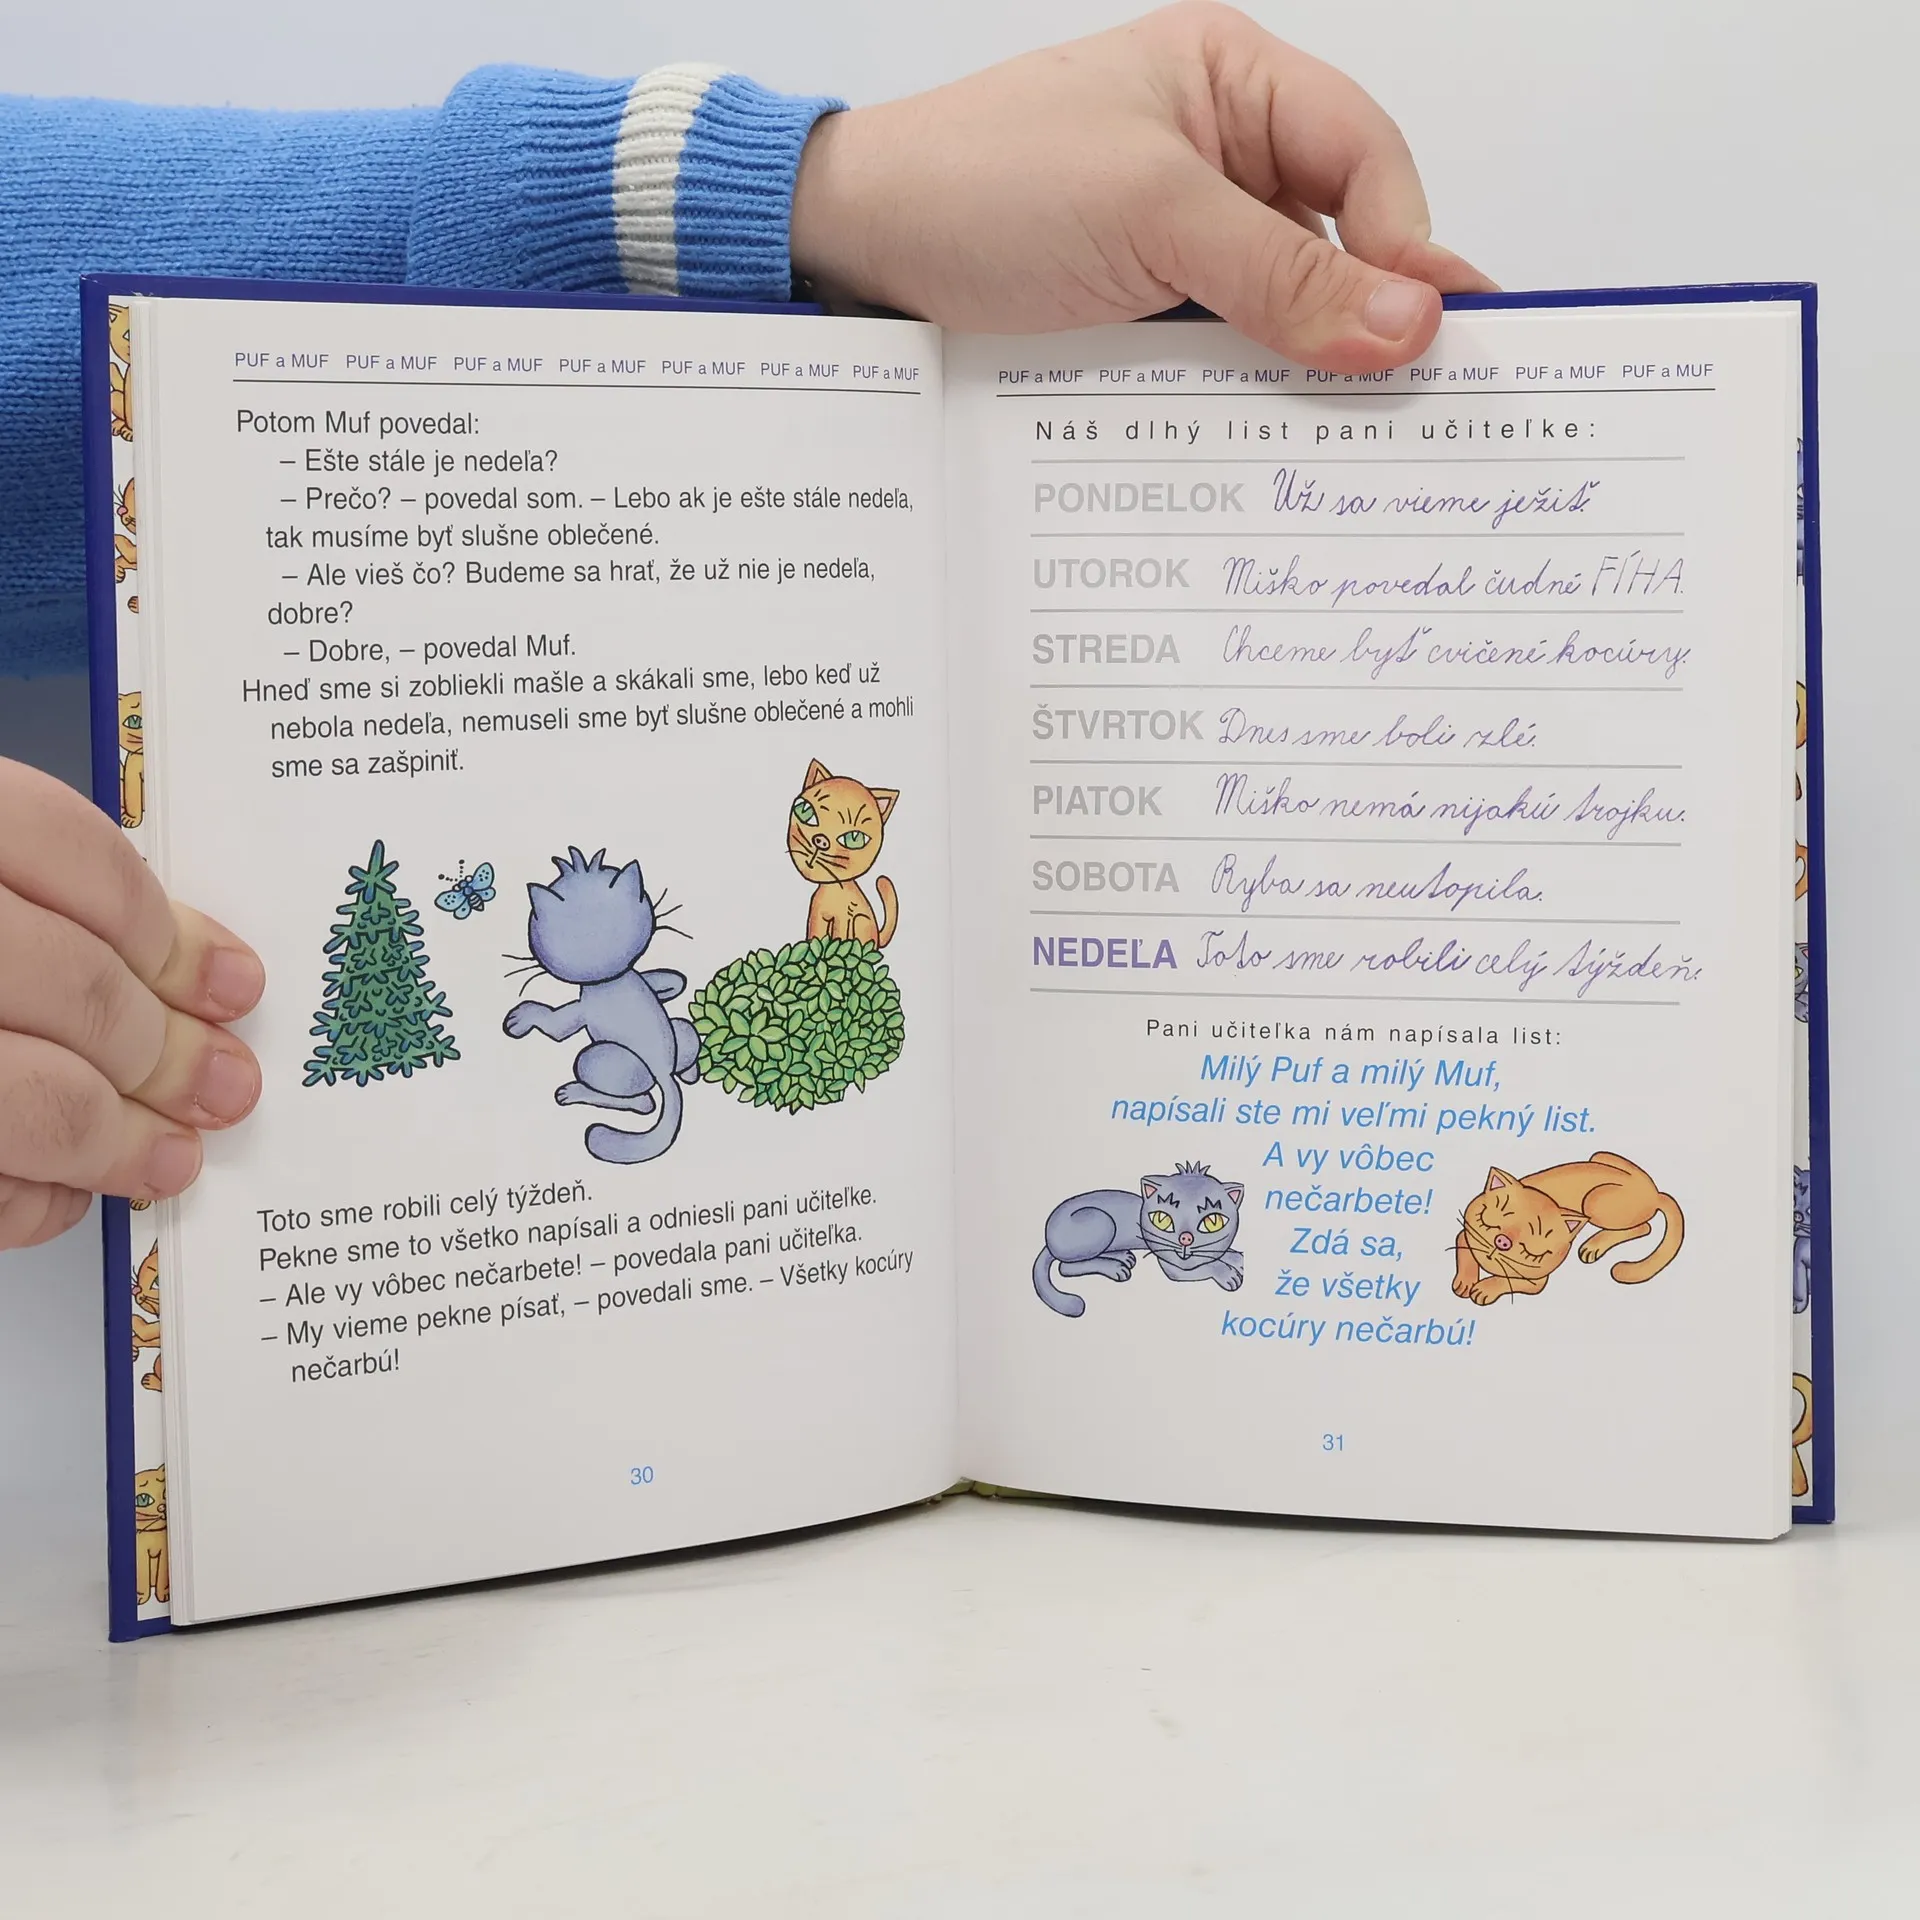 PUF a MUF PUF a MUF PUF a MUF PUF a MUF PUF a MUF PUF a MUF PUF a MUF
Potom Muf povedal:
– Ešte stále je nedeľa?
– Prečo? – povedal som. – Lebo ak je ešte stále nedeľa,
tak musíme byť slušne oblečené.
– Ale vieš čo? Budeme sa hrať, že už nie je nedeľa,
dobre?
– Dobre, – povedal Muf.
Hneď sme si zobliekli mašle a skákali sme, lebo keď už
nebola nedeľa, nemuseli sme byť slušne oblečené a mohli
sme sa zašpiniť.
Toto sme robili celý týždeň.
Pekne sme to všetko napísali a odniesli pani učiteľke.
– Ale vy vôbec nečarbete! – povedala pani učiteľka.
– My vieme pekne písať, – povedali sme. – Všetky kocúry
nečarbú!
30
PUF a MUF PUF a MUF PUF a MUF PUF a MUF PUF a MUF PUF a MUF PUF a MUF
Náš dlhý list pani učiteľke:
PONDELOK Už sa vieme ježiť.
UTOROK Miško povedal čudné FÍHA.
STREDA Chceme byť cvičené kocúry.
ŠTVRTOK Dnes sme boli zlé.
PIATOK Miško nemá nijakú trojku.
SOBOTA Ryba sa neutopila.
NEDEĽA Toto sme robili celý týždeň.
Pani učiteľka nám napísala list:
Milý Puf a milý Muf,
napísali ste mi veľmi pekný list.
A vy vôbec
nečarbete!
Zdá sa,
že všetky
kocúry nečarbú!
31